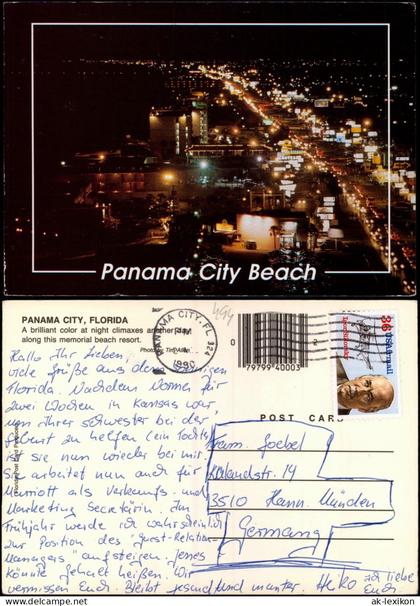 Panama City Beach
PANAMA CITY, FLORIDA
A brilliant color at night climaxes another day
along this memorial beach resort.
PANAMA CITY, FL 324
PM
1990
494
0
2
79799 40003
36 USAirmail
Igor Sikorsky
POST CARD
Hallo Ihr Lieben,
viele Grüße aus dem sonnigen
Florida. Nachdem
zwei Wochen in Kansas war,
um ihrer Schwester bei der
Geburt zu helfen (ein Tochter)
ist sie nun wieder bei mir.
Sie arbeitet nun auch für
Marriott als Verkaufs- und
Marketing Secretärin. Im
Frühjahr werde ich wahrscheinlich
zur Position des "Guest-Relation
Managers" aufsteigen.
könnte gehalt heißen. Wir
vermissen Euch. Bleibt gesund und munter.
Heiko
ich liebe
Euch.
Fam. Goebel
14
3510 Hann. Münden
Germany
www.ak-ansichtskarten.de
ak-lexikon